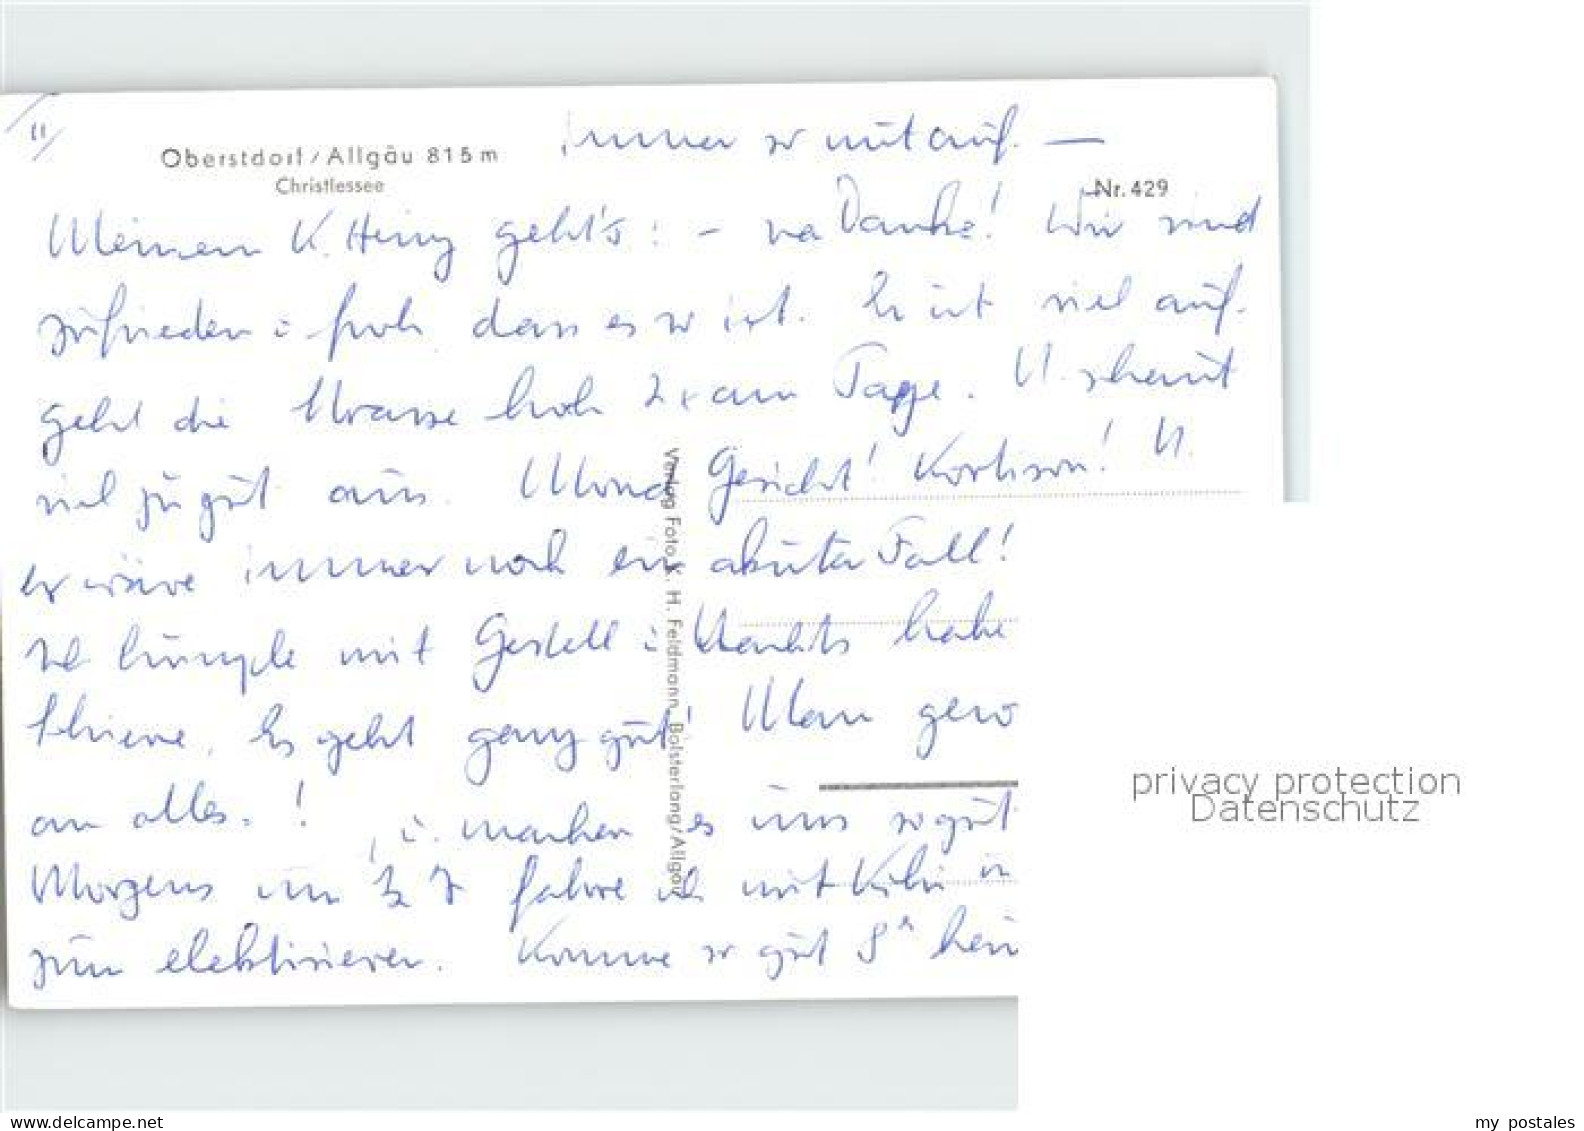 immer so mit auf. —
Oberstdorf / Allgäu 815 m
Christlessee
Nr. 429
Meinem K. Heinz geht's: – na Danke! Wir sind
zufrieden u. froh dass es so ist. Er ist viel auf.
geht die Strasse hoch 2 x am Tage. U. schaut
viel zu gut aus. Mond Gesicht! Kortison! U.
er wäre immer noch ein akuter Fall!
Ich humple mit Gestell u. Nachts habe
Schiene. Es geht ganz gut! Man gewö
an alles. ! , u. machen es uns so gut
Morgens um ½ 7 fahre ich mit in
zum elektrisieren. Komme so gut 8 h heim
Verlag Foto K. H. Feldmann, Bolsterlang/Allgäu
privacy protection
Datenschutz
my postales
www.delcampe.net